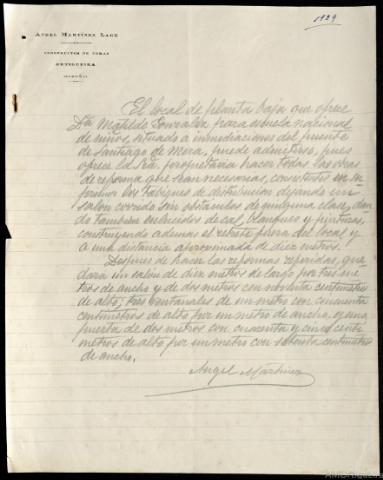 1929
ANGEL MARTÍNEZ LAGE
CONSTRUCTOR DE OBRAS
ORTIGUEIRA
El local de planta baja que ofrece
Dña Matilde Gonzalez para escuela nacional
de niños, situado a inmediaciones del puente
de Santiago de Mera, puede admitirse, pues
ofrece la Sra. propietaria hacer todas las obras
de reforma que sean necesarias, consistentes en su
primir los tabiques de distribucion dejando un
salon corrido sin obstáculos de ninguna clase, dan
do tambien enlucidos de cal, blanqueo y pinturas,
construyendo ademas el retrete fuera del local y
a una distancia aproximada de diez metros.
Despues de hacer las reformas referidas, que
dará un salon de diez metros de largo por tres me
tros de ancho y de dos metros con noventa centimetros
de alto; tres ventanales de un metro con cincuenta
centimetros de alto por un metro de ancho, y una
puerta de dos metros con cuarenta y cinco centi
metros de alto por un metro con setenta centimetros
de ancho.
Angel Martinez